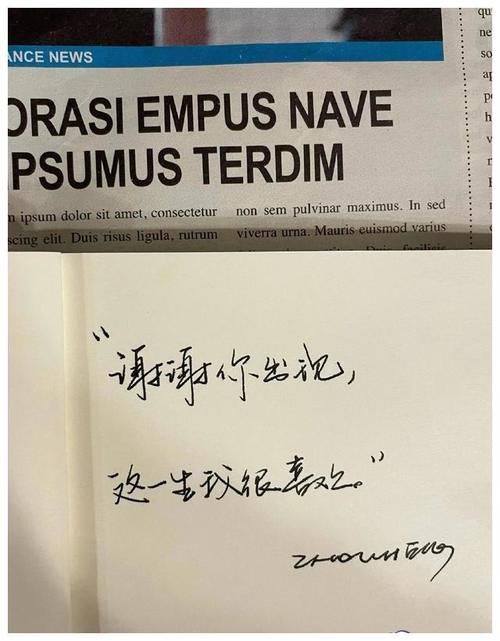 ANCE NEWS
ORASI EMPUS NAVE
IPSUMUS TERDIM
m ipsum dolor sit amet, consectetur
scing elit. Duis risus ligula, rutrum
non sem pulvinar maximus. In sed
viverra urna. Mauris euismod varius
qu
ne
so
ap
"谢谢你出现,
这一生我很喜欢。"